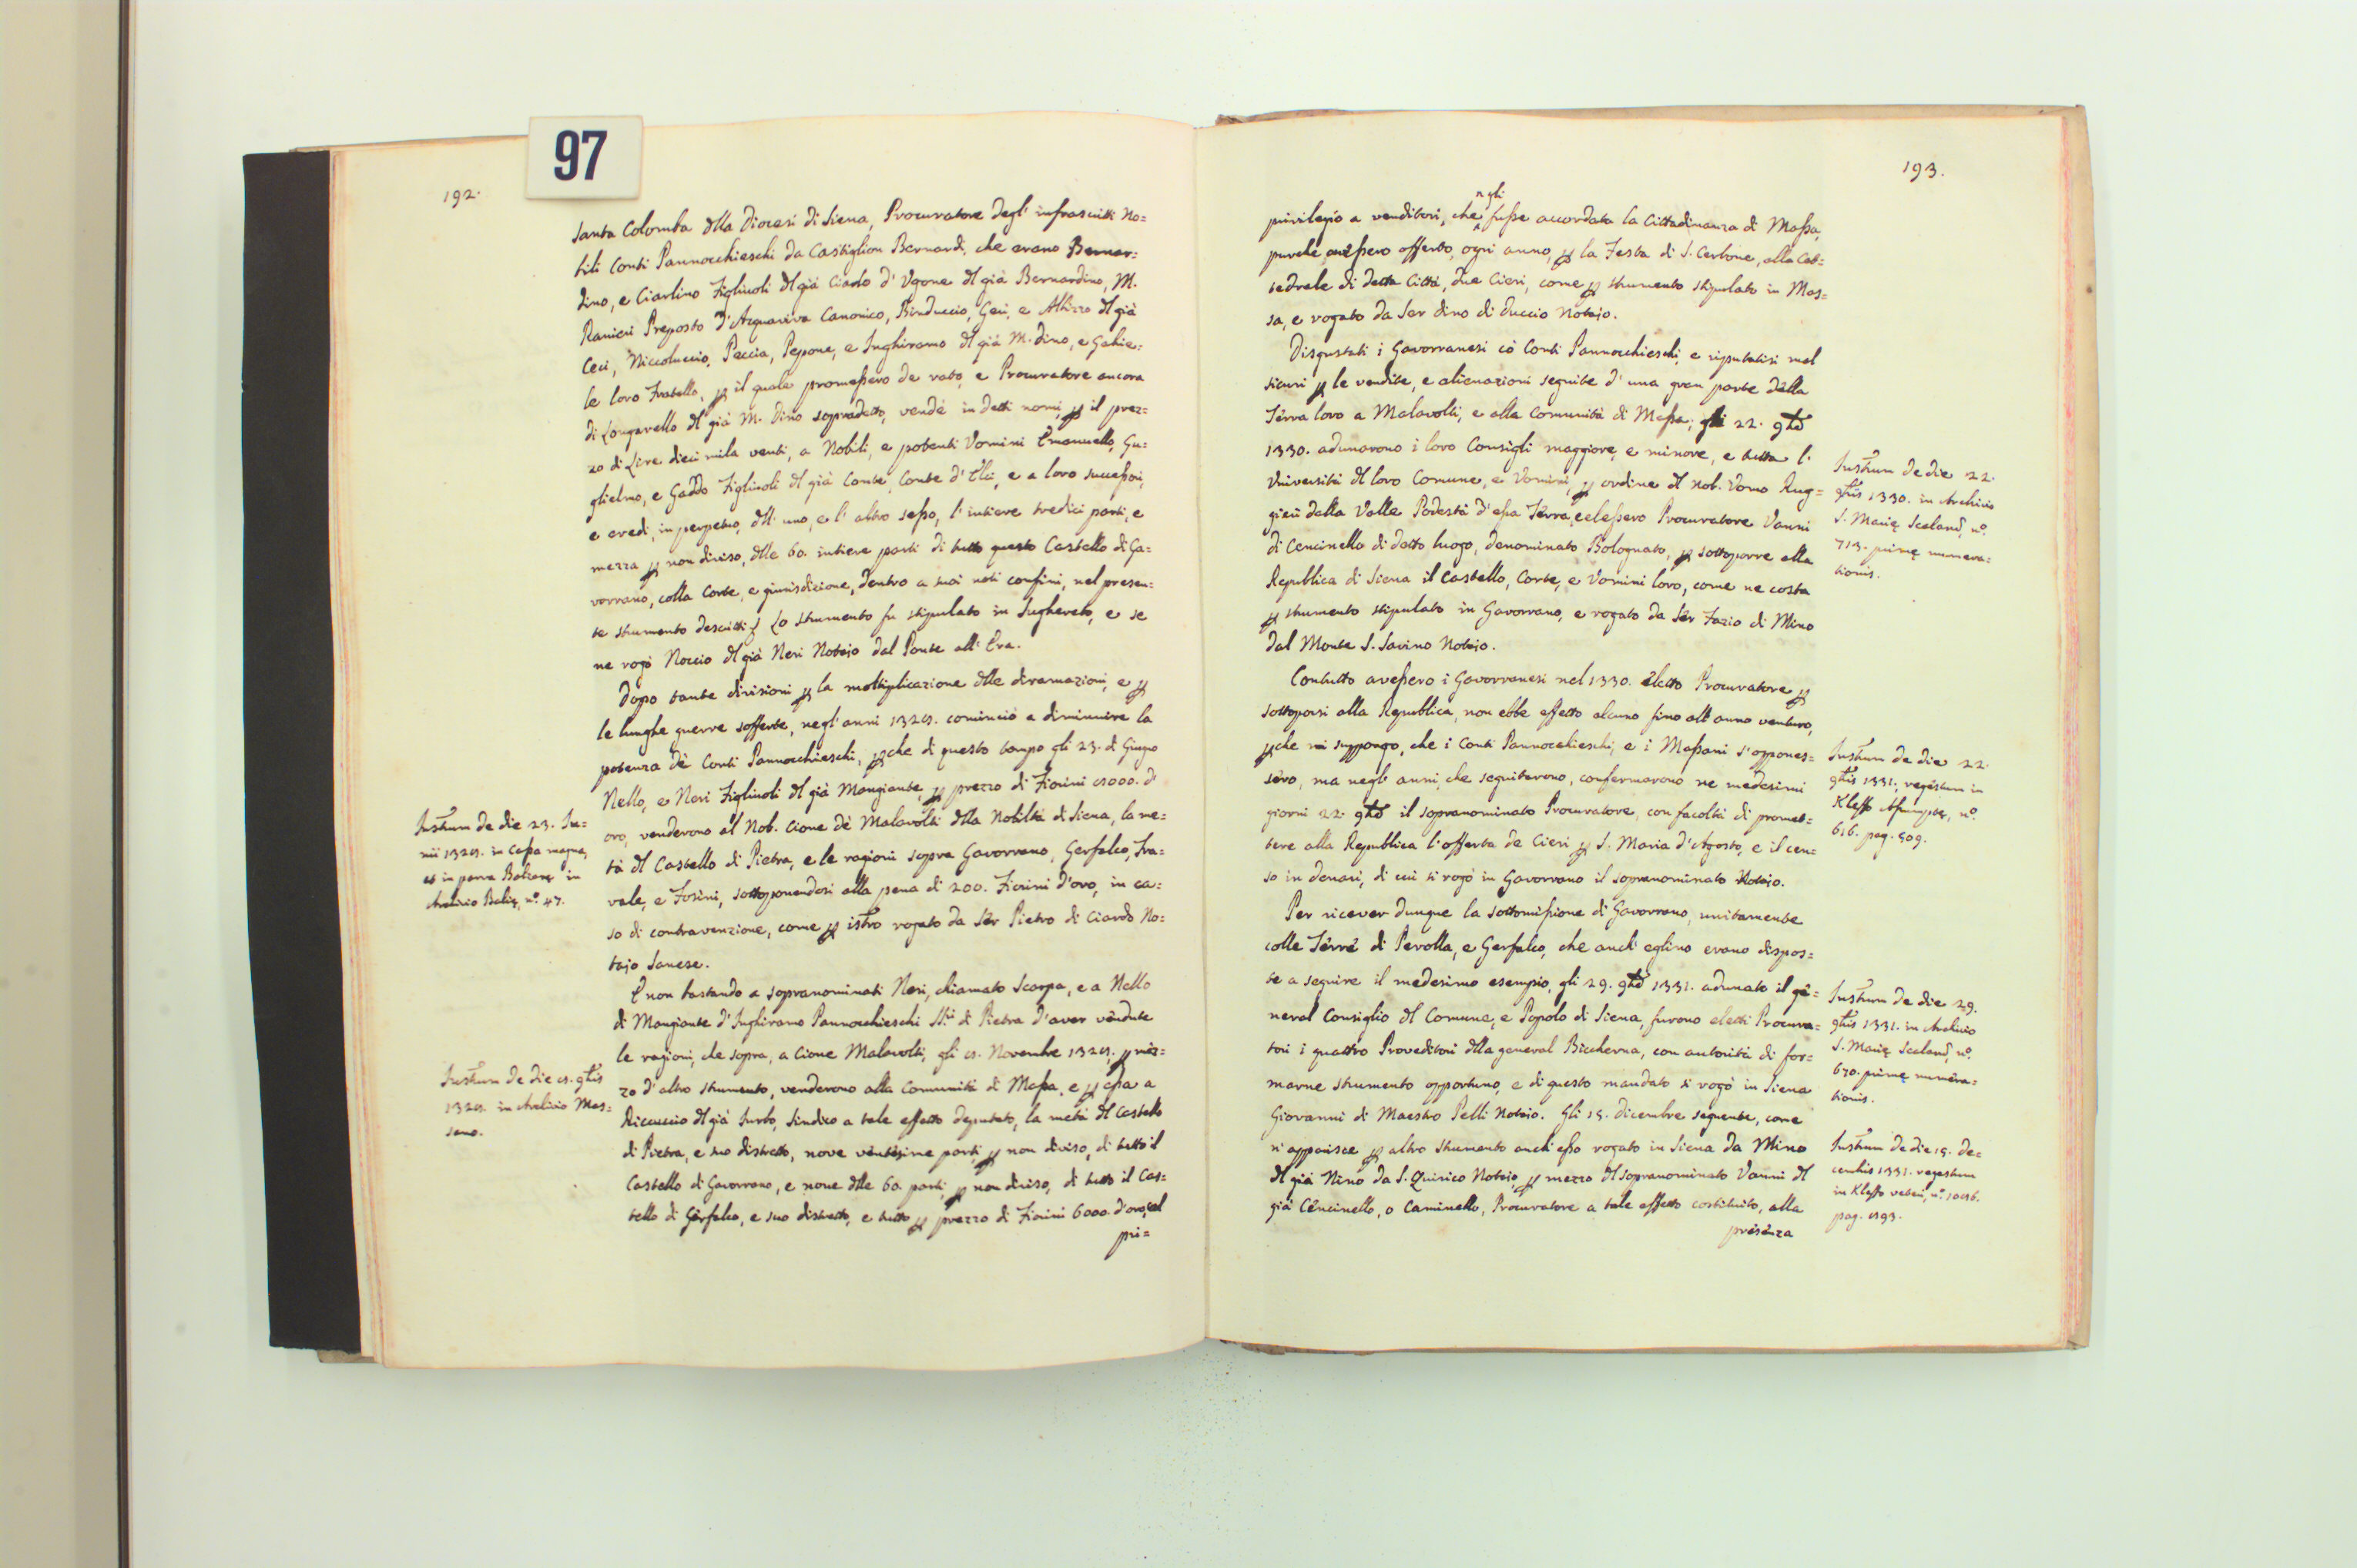 97
192.
Santa Colomba dlla Diocesi di Siena, Procuratore degl' infrascritti No=
bili Conti Pannocchieschi da Castiglion Bernardi, che erano Bernar=
dino, e Ciarlino Figliuoli dl già Ciardo d' Ugone dl già Bernardino, M.
Ranieri Preposto d'Acquaviva Canonico, Binduccio, Geri, e Albizzo dl già
Ceci, Niccoluccio, Peccia, Pepone, e Inghiramo dl già M. Dino, e Gabie=
le loro Fratello, p il quale promessero de rato, e Procuratore ancora
di Longarello dl già M. Dino sopradetto, vendé in detti nomi, p il prez=
zo di Lire dieci mila venti, a Nobili, e potenti Uomini Emanuello, Gu=
glielmo, e Gaddo Figliuoli dl già Conte, Conte d' Elci, e a loro successori,
e eredi, in perpetuo, dll' uno, e l' altro sesso, l' intiere tredici parti, e
mezza p non diviso, dlle 60. intiere parti di tutto questo Castello di Ga=
vorrano, colla Corte, e giurisdizione, dentro a suoi noti confini, nel presen=
te strumento descritti. Lo strumento fu stipulato in Sughereto, e se
ne rogò Noccio dl già Neri Notajo dal Ponte all' Era.
Dopo tante divisioni p la moltiplicazione dlle diramazioni, e p
le lunghe guerre sofferte, negl' anni 1328. cominciò a diminuire la
potenza dè Conti Pannocchieschi, pche di questo tempo gli 23. di Giugno
Nello, e Neri Figliuoli dl già Mangiante, p prezzo di Fiorini 8000. d'
oro, venderono al Nob. Cione dè Malavolti dlla Nobiltà di Siena, la me=
tà dl Castello di Pietra, e le ragioni sopra Gavorrano, Gerfalco, Tra=
vale, e Fosini, sottoponendosi alla pena di 200. Fiorini d'oro, in ca=
so di contravenzione, come p istro rogato da Ser Pietro di Ciardo No=
tajo Sanese.
E non bastando a sopranominati Neri, chiamato Scarpa, e a Nello
di Mangiante d' Inghiramo Pannocchieschi SS.ri di Pietra d'aver vendute
le ragioni, che sopra, a Cione Malavolti, gli 8. Novembre 1328. p mez=
zo d'altro strumento, venderono alla Comunità di Massa, e p essa a
Ricuccio dl già Surbo, Sindico a tale effetto deputato, la metà dl Castello
di Pietra, e suo distretto, nove ventesime parti p non diviso, di tutto il
Castello di Gavorrano, e nove dlle 60. parti p non diviso, di tutto il Cas=
tello di Gerfalco, e suo distretto, e tutto p prezzo di Fiorini 6000. d'oro, col
pri=
Instrum de die 23. Ju=
nii 1328. in Cassa magna,
et in parva Balzanę in
Archivio Balię, nº. 47.
Instrum de die 8. 9bris
1328. in Archivio Mas=
sano.
193.
privilegio a venditori, che gli fusse accordata la Cittadinanza di Massa,
purche avessero offerto, ogni anno, p la Festa di S. Cerbone, alla Cat=
tedrale di detta Città, due Cieri, come p strumento stipulato in Mas=
sa, e rogato da Ser Dino di Duccio Notajo.
Disgustati i Gavorranesi cò Conti Pannocchieschi, e riputatisi mal
sicuri p le vendite, e alienazioni seguite d' una gran parte della
Terra loro a Malavolti, e alla Comunità di Massa, gli 22. 9bre
1330. adunarono i loro Consigli maggiore, e minore, e tutta l'
Università dl loro Comune, e Uomini, p ordine dl Nob. Uomo Rug=
gieri dalla Valle Podestà d' essa Terra, e elessero Procuratore Vanni
di Cencinello di detto luogo, denominato Bolognato, p sottoporre alla
Republica di Siena il Castello, Corte, e Uomini loro, come ne costa
p strumento stipulato in Gavorrano, e rogato da Ser Fazio di Mino
dal Monte S. Savino Notajo.
Contutto avessero i Gavorranesi nel 1330. eletto Procuratore p
sottoporsi alla Republica, non ebbe effetto alcuno fino all' anno venturo,
pche mi suppongo, che i Conti Pannocchieschi, e i Massani s'oppones=
sero, ma negl' anni, che seguiterono, confermarono ne medesimi
giorni 22. 9bre il sopranominato Procuratore, con facoltà di promet=
tere alla Republica l'offerta de Cieri p S. Maria d'Agosto, e il cen=
so in denari, di cui si rogò in Gavorrano il sopranominato Notajo.
Per ricever dunque la sottomissione di Gavorrano, unitamente
colle Terre di Perolla, e Gerfalco, che anch' eglino erano dispos=
te a seguire il medesimo esempio, gli 29. 9bre 1331. adunato il ge=
neral Consiglio dl Comune, e Popolo di Siena, furono eletti Procura=
tori i quattro Proveditori dlla general Biccherna, con autorità di for=
marne strumento opportuno, e di questo mandato si rogò in Siena
Giovanni di Maestro Pelli Notajo. Gli 15. Dicembre seguente, come
n' apparisce p altro strumento anch' esso rogato in Siena da Mino
dl già Nino da S. Quirico Notajo, p mezzo dl sopranominato Vanni dl
già Cencinello, o Caminello, Procuratore a tale effetto costituito, alla
presenza
Instrum de die 22.
9bris 1330. in Archivio
S. Marię Scelarū, nº.
713. primę numera=
tionis.
Instrum de die 22.
9bris 1331. registum in
Kleffo Assumptę, nº.
616. pag. 509.
Instrum de die 29.
9bris 1331. in Archivio
S. Marię Scelarū, nº.
670. primę numera=
tionis.
Instrum de die 15. De=
cembis 1331. regestum
in Kleffo veteri, nº. 1086.
pag. 893.